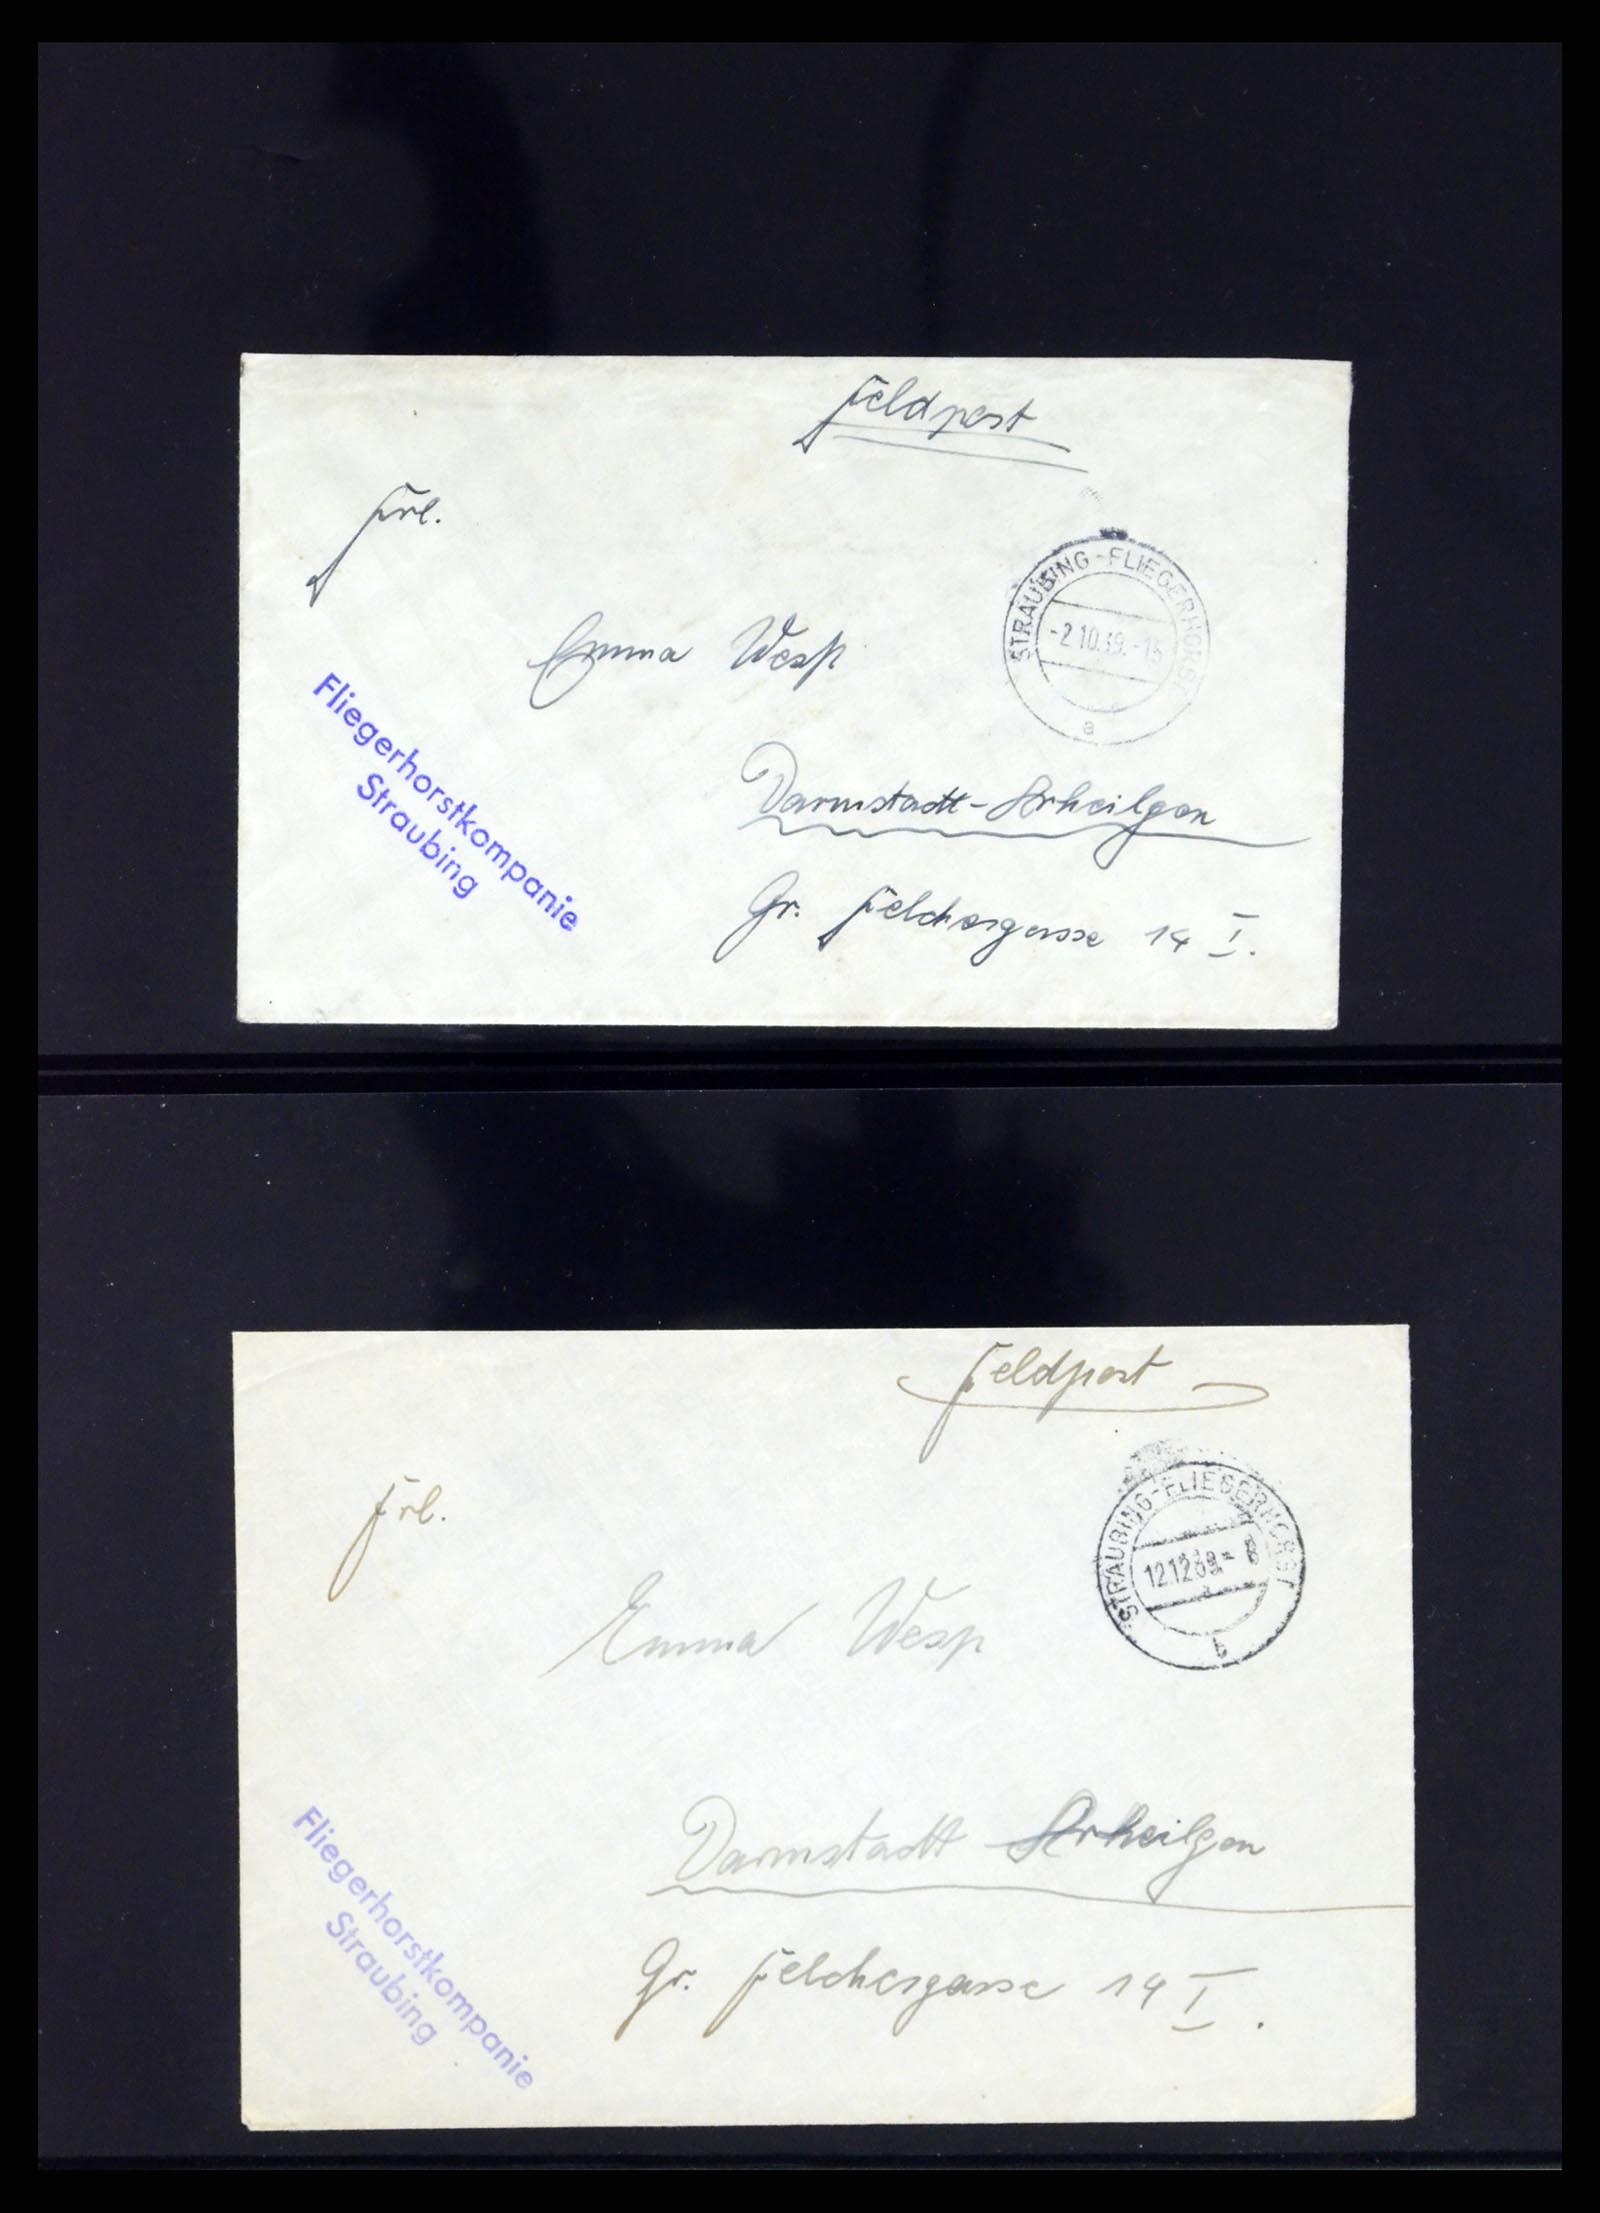 Feldpost
Frl.
STRAUBING-FLIEGERHORST
-2.10.39.-15
a
Emma Wesp
Fliegerhorstkompanie
Straubing
Darmstadt-Arheilgen
Gr. Felchesgasse 14 I.
Feldpost
Frl.
STRAUBING-FLIEGERHORST
12.12.39.- 8
b
Emma Wesp
Darmstadt-Arheilgen
Fliegerhorstkompanie
Straubing
Gr. Felchesgasse 14 I.